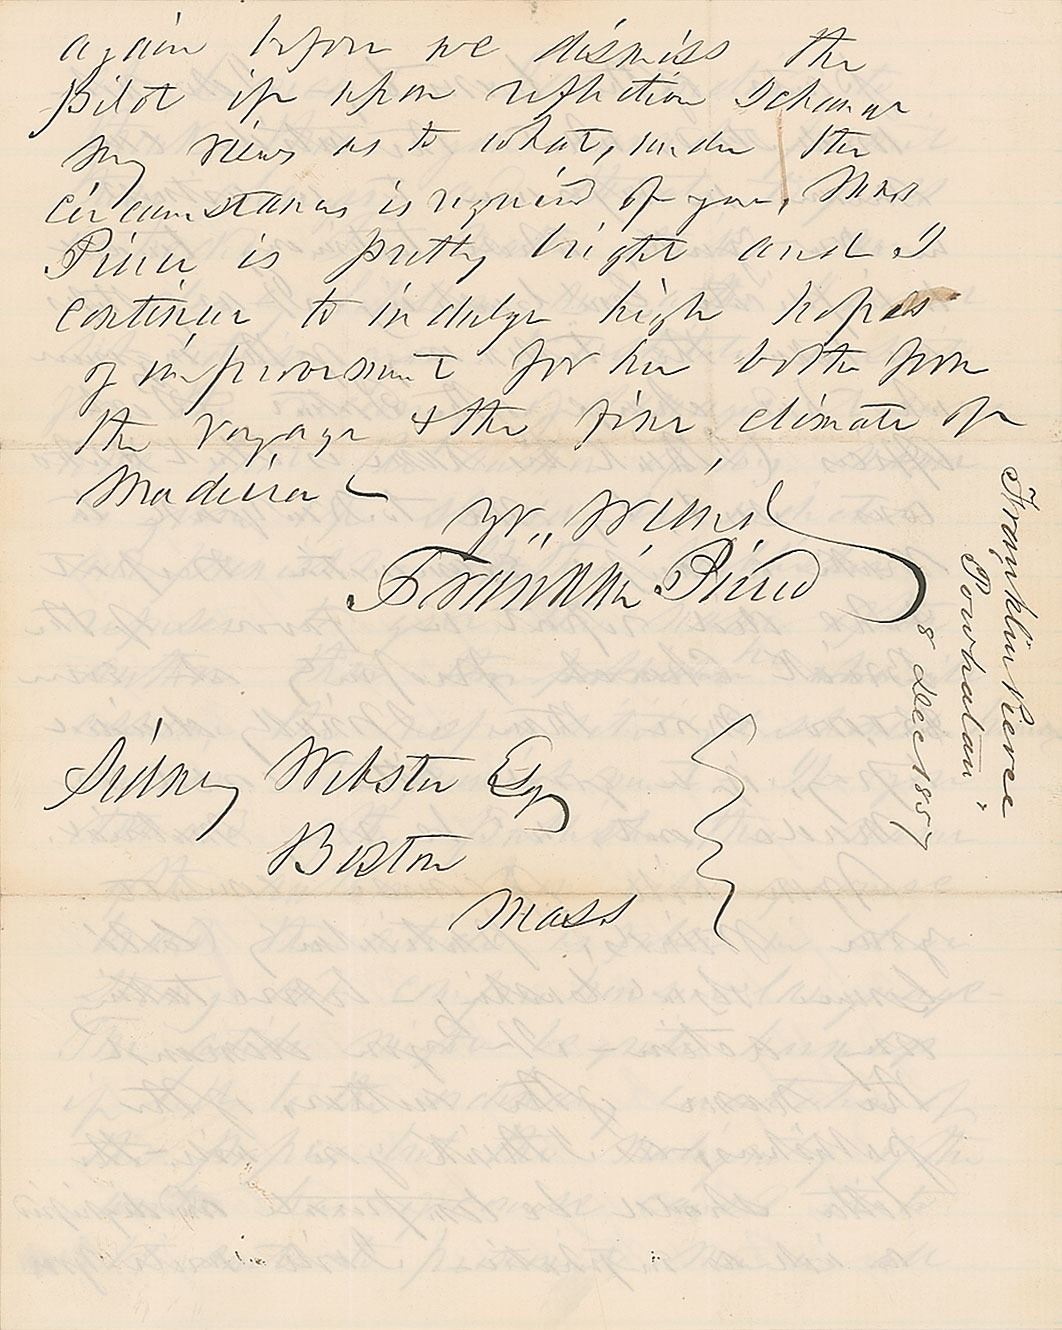 again before we dismiss the
Pilot if upon reflection I change
my views as to what, under the
circumstances is required of you, Mrs
Pierce is pretty bright and I
continue to indulge high hopes
of improvement for her both from
the voyage & the fine climate of
Madeira
Yr., friend
Franklin Pierce
Sidney Webster Esq
Boston
Mass
Franklin Pierce
Powhatan,
8 Dec 1857